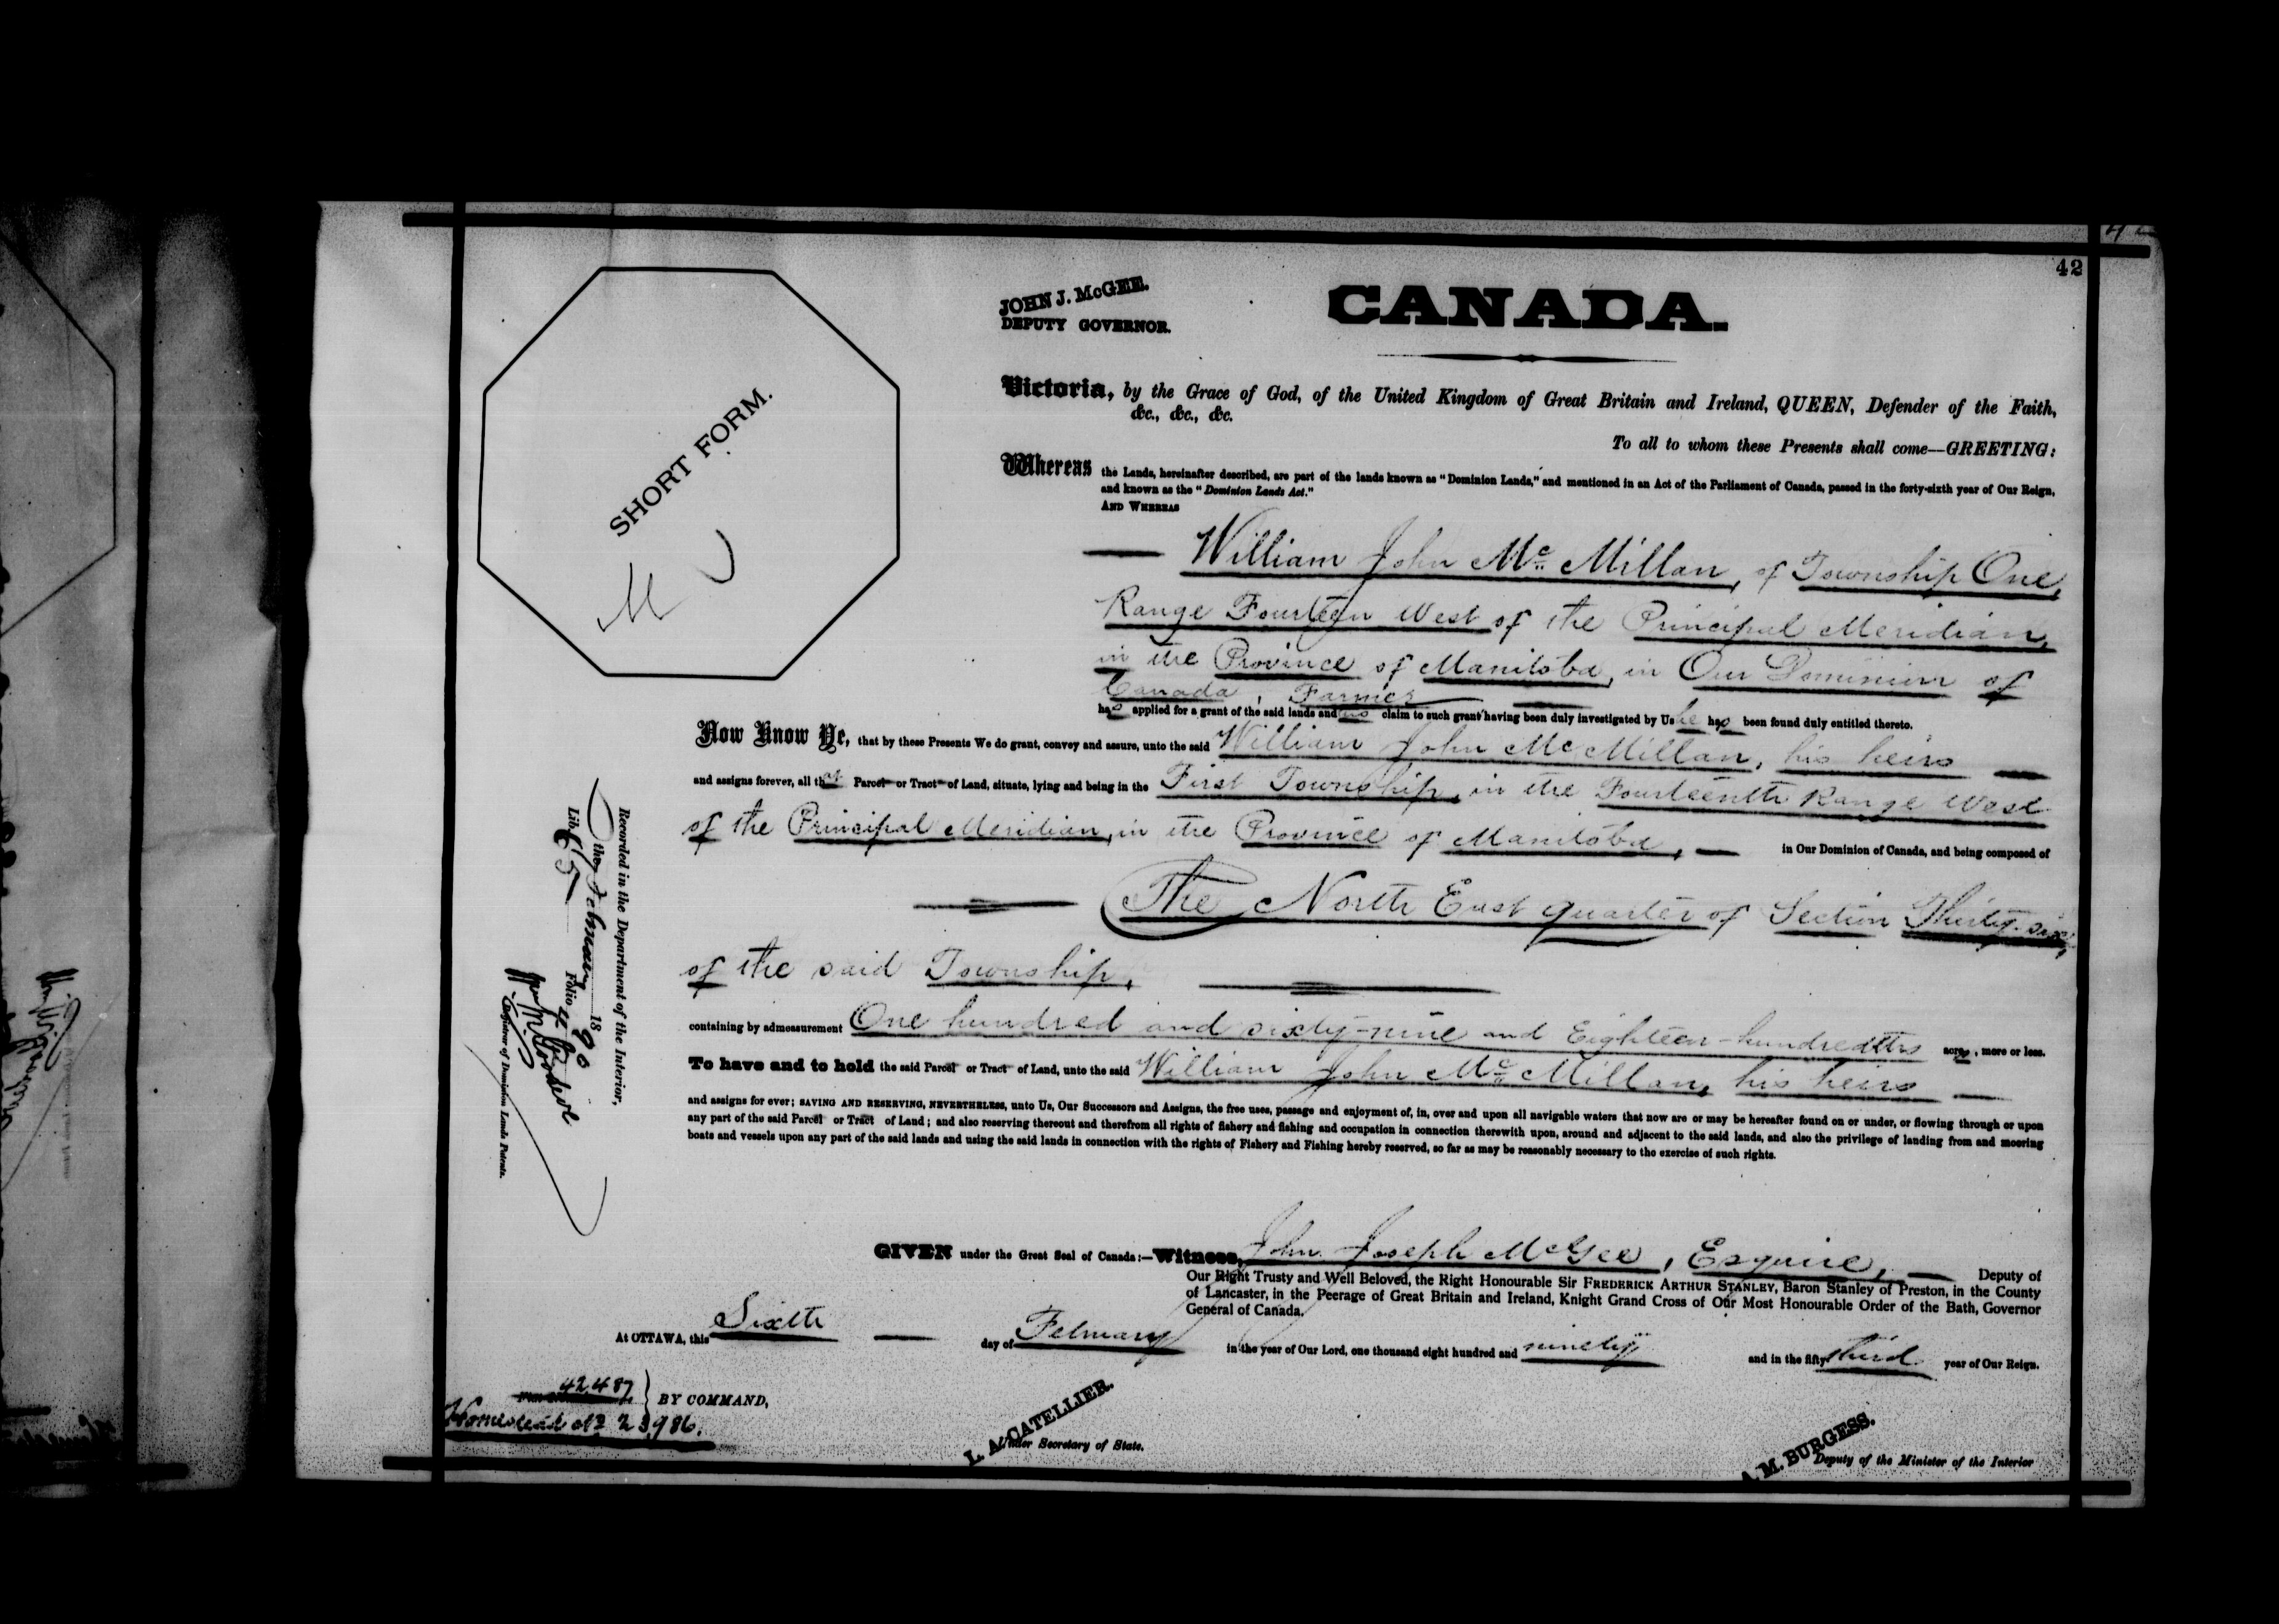 42
JOHN J. McGEE.
DEPUTY GOVERNOR.
CANADA.
SHORT FORM.
Victoria, by the Grace of God, of the United Kingdom of Great Britain and Ireland, QUEEN, Defender of the Faith,
&c., &c., &c.
To all to whom these Presents shall come—GREETING:
Whereas the Lands, hereinafter described, are part of the lands known as "Dominion Lands," and mentioned in an Act of the Parliament of Canada, passed in the forty-sixth year of Our Reign,
and known as the "Dominion Lands Act."
AND WHEREAS
William John Mc Millan, of Township One,
Range Fourteen West of the Principal Meridian,
in the Province of Manitoba, in Our Dominion of
Canada, Farmer
has applied for a grant of the said lands and his claim to such grant having been duly investigated by Us he has been found duly entitled thereto.
Now Know Ye, that by these Presents We do grant, convey and assure, unto the said William John Mc Millan, his heirs
and assigns forever, all that Parcel or Tract of Land, situate, lying and being in the First Township, in the Fourteenth Range West
of the Principal Meridian, in the Province of Manitoba, in Our Dominion of Canada, and being composed of
The North East quarter of Section Thirty-six,
of the said Township,
containing by admeasurement One hundred and sixty-nine and Eighteen-hundredths acres, more or less.
To have and to hold the said Parcel or Tract of Land, unto the said William John Mc Millan, his heirs
and assigns for ever; SAVING AND RESERVING, NEVERTHELESS, unto Us, Our Successors and Assigns, the free uses, passage and enjoyment of, in, over and upon all navigable waters that now are or may be hereafter found on or under, or flowing through or upon
any part of the said Parcel or Tract of Land; and also reserving thereout and therefrom all rights of fishery and fishing and occupation in connection therewith upon, around and adjacent to the said lands, and also the privilege of landing from and mooring
boats and vessels upon any part of the said lands and using the said lands in connection with the rights of Fishery and Fishing hereby reserved, so far as may be reasonably necessary to the exercise of such rights.
Recorded in the Department of the Interior,
the February 1890
Lib. 65 Folio 42
Registrar of Dominion Lands Patents.
GIVEN under the Great Seal of Canada:—Witness, John Joseph McGee, Esquire, Deputy of
Our Right Trusty and Well Beloved, the Right Honourable Sir FREDERICK ARTHUR STANLEY, Baron Stanley of Preston, in the County
of Lancaster, in the Peerage of Great Britain and Ireland, Knight Grand Cross of Our Most Honourable Order of the Bath, Governor
General of Canada.
At OTTAWA, this Sixth day of February in the year of Our Lord, one thousand eight hundred and ninety and in the fifty third year of Our Reign.
42,487
BY COMMAND,
Homestead No 23,986.
L. A. CATELLIER.
Under Secretary of State.
A. M. BURGESS.
Deputy of the Minister of the Interior